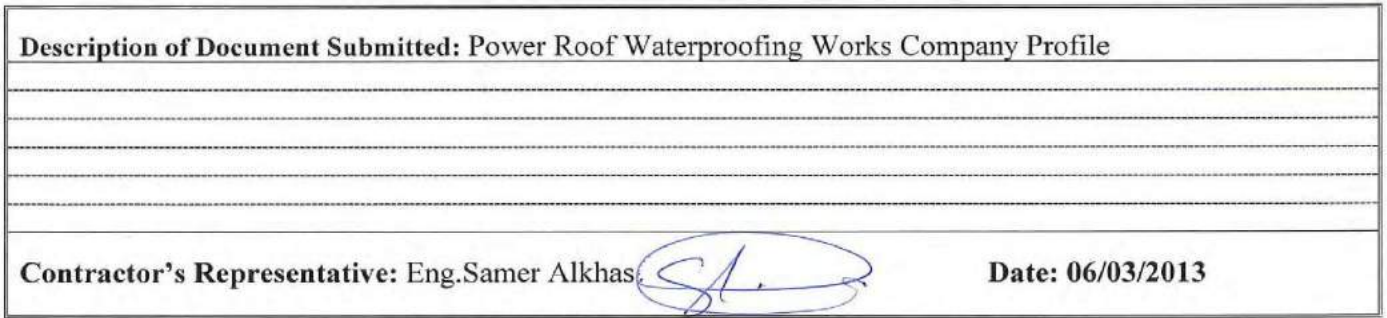 Description of Document Submitted: Power Roof Waterproofing Works Company Profile
Contractor's Representative: Eng.Samer Alkhas. Date: 06/03/2013